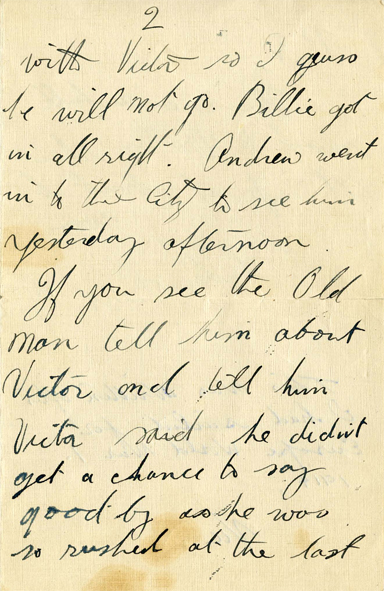 2
with Victor so I guess
he will not go. Billie got
in all right. Andrew went
in to the City to see him
yesterday afternoon.
If you see the Old
man tell him about
Victor and tell him
Victor said he didn't
get a chance to say
good by as he was
so rushed at the last